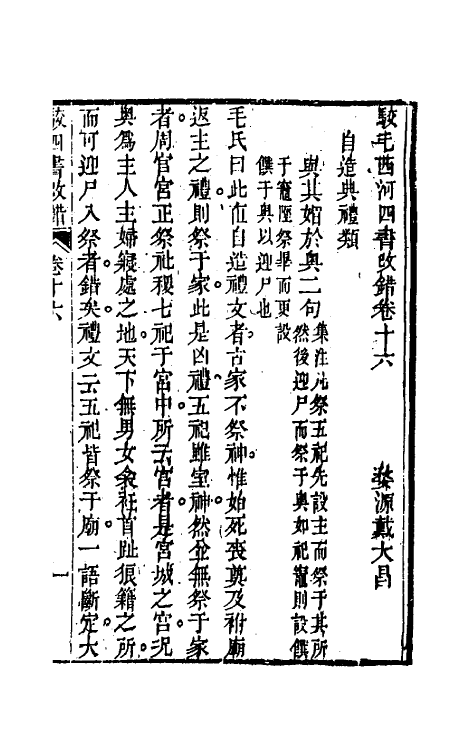 駁毛西河四書改錯卷十六　　婺源戴大昌
自造典禮類
與其媚於奧二句
集注凡祭五祀先設主而祭于其所
然後迎尸而祭于奧如祀竈則設饌
于竈陘祭畢而更設
饌于奧以迎尸也
毛氏曰此亦自造禮文者古家不祭神惟始死喪奠及祔廟
返主之禮則祭于家此是凶禮五祀雖室神然並無祭于家
者周官宮正祭社稷七祀于宮中所云宮者是宮城之宮況
奧爲主人主婦寢處之地天下無男女衾衽首趾狼籍之所
而可迎尸入祭者錯矣禮文云五祀皆祭于廟一語斷定大
駁四書改錯　卷十六　一